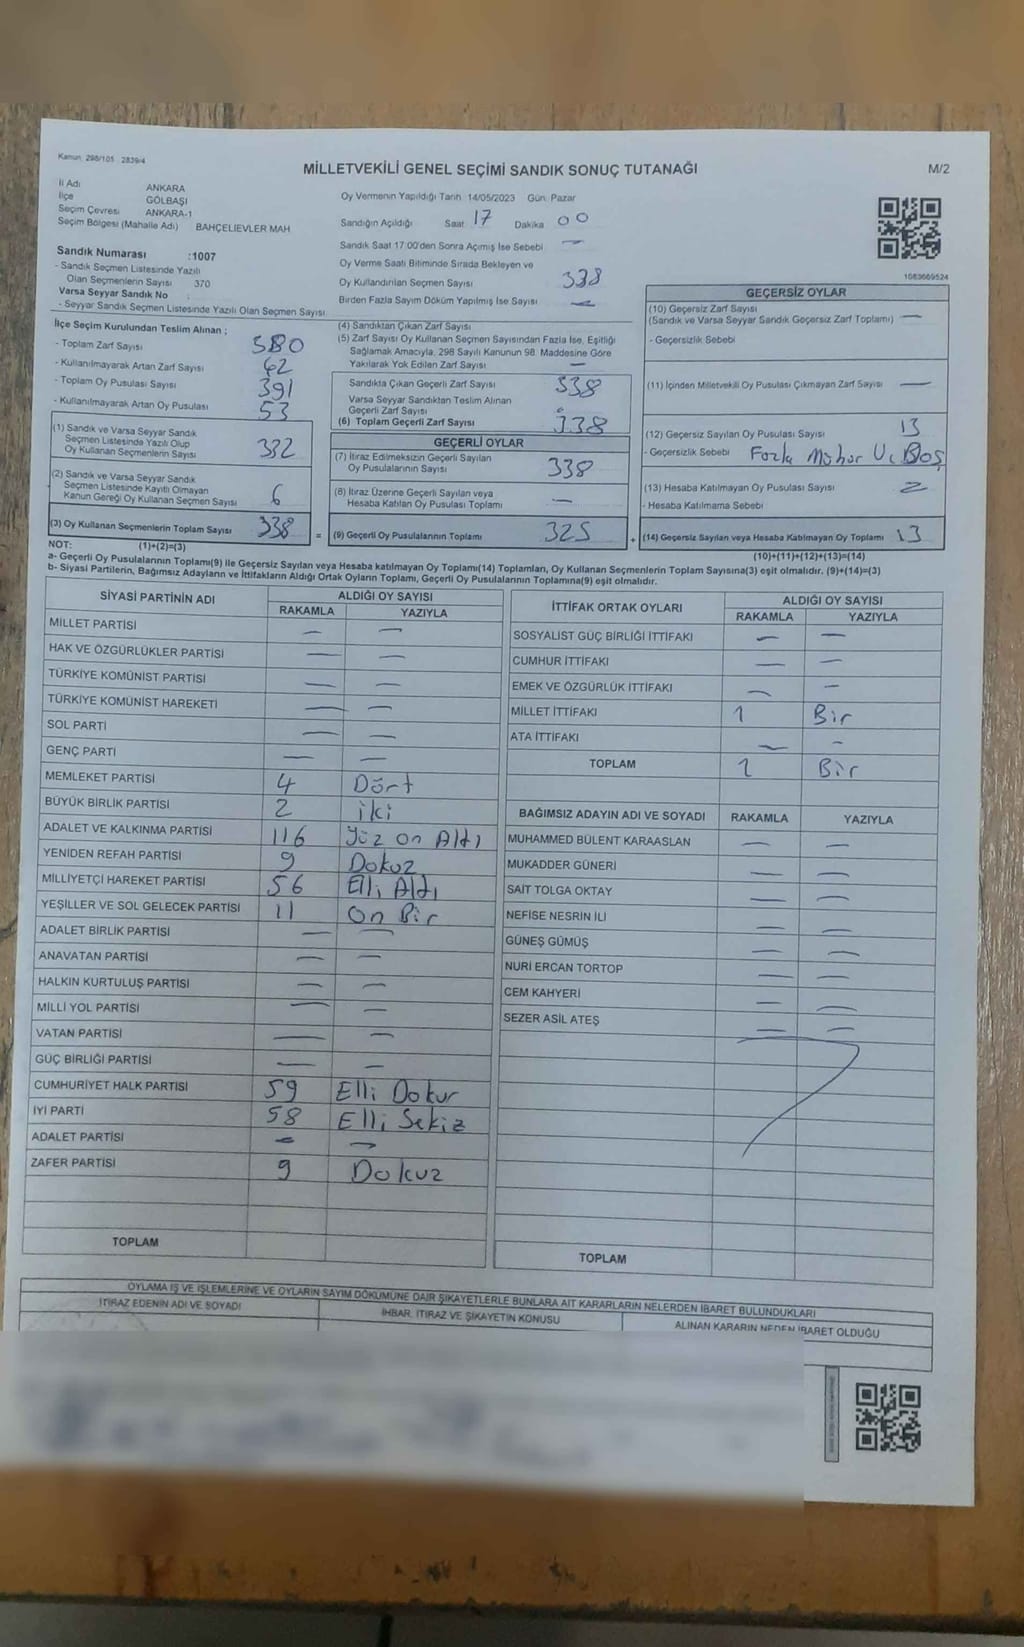 Kanun 298/105 2839/4
MİLLETVEKİLİ GENEL SEÇİMİ SANDIK SONUÇ TUTANAĞI
M/2
İl Adı ANKARA
İlçe GÖLBAŞI
Seçim Çevresi ANKARA-1
Seçim Bölgesi (Mahalle Adı) BAHÇELİEVLER MAH.
Sandık Numarası :1007
- Sandık Seçmen Listesinde Yazılı
Olan Seçmenlerin Sayısı 370
Varsa Seyyar Sandık No
- Seyyar Sandık Seçmen Listesinde Yazılı Olan Seçmen Sayısı
Oy Vermenin Yapıldığı Tarih 14/05/2023 Gün Pazar
Sandığın Açıldığı Saat 17 Dakika 00
Sandık Saat 17:00'den Sonra Açımış İse Sebebi —
Oy Verme Saati Bitiminde Sırada Bekleyen ve
Oy Kullandırılan Seçmen Sayısı 338
Birden Fazla Sayım Döküm Yapılmış İse Sayısı —
1083669524
İlçe Seçim Kurulundan Teslim Alınan ;
- Toplam Zarf Sayısı 380
- Kullanılmayarak Artan Zarf Sayısı 42
- Toplam Oy Pusulası Sayısı 391
- Kullanılmayarak Artan Oy Pusulası 53
(1) Sandık ve Varsa Seyyar Sandık
Seçmen Listesinde Yazılı Olup
Oy Kullanan Seçmenlerin Sayısı 332
(2) Sandık ve Varsa Seyyar Sandık
Seçmen Listesinde Kayıtlı Olmayan
Kanun Gereği Oy Kullanan Seçmen Sayısı 6
(3) Oy Kullanan Seçmenlerin Toplam Sayısı 338
(4) Sandıktan Çıkan Zarf Sayısı
(5) Zarf Sayısı Oy Kullanan Seçmen Sayısından Fazla İse, Eşitliği
Sağlamak Amacıyla, 298 Sayılı Kanunun 98. Maddesine Göre
Yakılarak Yok Edilen Zarf Sayısı —
Sandıkta Çıkan Geçerli Zarf Sayısı 338
Varsa Seyyar Sandıktan Teslim Alınan
Geçerli Zarf Sayısı
(6) Toplam Geçerli Zarf Sayısı 338
GEÇERLİ OYLAR
(7) İtiraz Edilmeksizin Geçerli Sayılan
Oy Pusulalarının Sayısı 338
(8) İtiraz Üzerine Geçerli Sayılan veya
Hesaba Katılan Oy Pusulası Toplamı —
= (9) Geçerli Oy Pusulalarının Toplamı 325
GEÇERSİZ OYLAR
(10) Geçersiz Zarf Sayısı
(Sandık ve Varsa Seyyar Sandık Geçersiz Zarf Toplamı) —
- Geçersizlik Sebebi
(11) İçinden Milletvekili Oy Pusulası Çıkmayan Zarf Sayısı —
(12) Geçersiz Sayılan Oy Pusulası Sayısı 13
- Geçersizlik Sebebi Fazla Mühür Ve Boş
(13) Hesaba Katılmayan Oy Pusulası Sayısı
- Hesaba Katılmama Sebebi
+ (14) Geçersiz Sayılan veya Hesaba Katılmayan Oy Toplamı 13
NOT: (1)+(2)=(3)
(10)+(11)+(12)+(13)=(14)
a- Geçerli Oy Pusulalarının Toplamı(9) ile Geçersiz Sayılan veya Hesaba katılmayan Oy Toplamı(14) Toplamları, Oy Kullanan Seçmenlerin Toplam Sayısına(3) eşit olmalıdır. (9)+(14)=(3)
b- Siyasi Partilerin, Bağımsız Adayların ve İttifakların Aldığı Ortak Oyların Toplamı, Geçerli Oy Pusulalarının Toplamına(9) eşit olmalıdır.
SİYASİ PARTİNİN ADI ALDIĞI OY SAYISI
RAKAMLA YAZIYLA
MİLLET PARTİSİ — —
HAK VE ÖZGÜRLÜKLER PARTİSİ — —
TÜRKİYE KOMÜNİST PARTİSİ — —
TÜRKİYE KOMÜNİST HAREKETİ — —
SOL PARTİ — —
GENÇ PARTİ — —
MEMLEKET PARTİSİ 4 Dört
BÜYÜK BİRLİK PARTİSİ 2 iki
ADALET VE KALKINMA PARTİSİ 116 Yüz on Altı
YENİDEN REFAH PARTİSİ 9 Dokuz
MİLLİYETÇİ HAREKET PARTİSİ 56 Elli Altı
YEŞİLLER VE SOL GELECEK PARTİSİ 11 on Bir
ADALET BİRLİK PARTİSİ — —
ANAVATAN PARTİSİ — —
HALKIN KURTULUŞ PARTİSİ — —
MİLLİ YOL PARTİSİ — —
VATAN PARTİSİ — —
GÜÇ BİRLİĞİ PARTİSİ — —
CUMHURİYET HALK PARTİSİ 59 Elli Dokuz
İYİ PARTİ 58 Elli Sekiz
ADALET PARTİSİ — —
ZAFER PARTİSİ 9 Dokuz
TOPLAM
İTTİFAK ORTAK OYLARI ALDIĞI OY SAYISI
RAKAMLA YAZIYLA
SOSYALİST GÜÇ BİRLİĞİ İTTİFAKI — —
CUMHUR İTTİFAKI — —
EMEK VE ÖZGÜRLÜK İTTİFAKI — —
MİLLET İTTİFAKI 1 Bir
ATA İTTİFAKI — —
TOPLAM 1 Bir
BAĞIMSIZ ADAYIN ADI VE SOYADI RAKAMLA YAZIYLA
MUHAMMED BÜLENT KARAASLAN — —
MUKADDER GÜNERİ — —
SAİT TOLGA OKTAY — —
NEFİSE NESRİN İLİ — —
GÜNEŞ GÜMÜŞ — —
NURİ ERCAN TORTOP — —
CEM KAHYERİ — —
SEZER ASİL ATEŞ — —
TOPLAM
OYLAMA İŞ VE İŞLEMLERİNE VE OYLARIN SAYIM DÖKÜMÜNE DAİR ŞİKAYETLERLE BUNLARA AİT KARARLARIN NELERDEN İBARET BULUNDUKLARI
İTİRAZ EDENİN ADI VE SOYADI İHBAR, İTİRAZ VE ŞİKAYETİN KONUSU ALINAN KARARIN NEDEN İBARET OLDUĞU